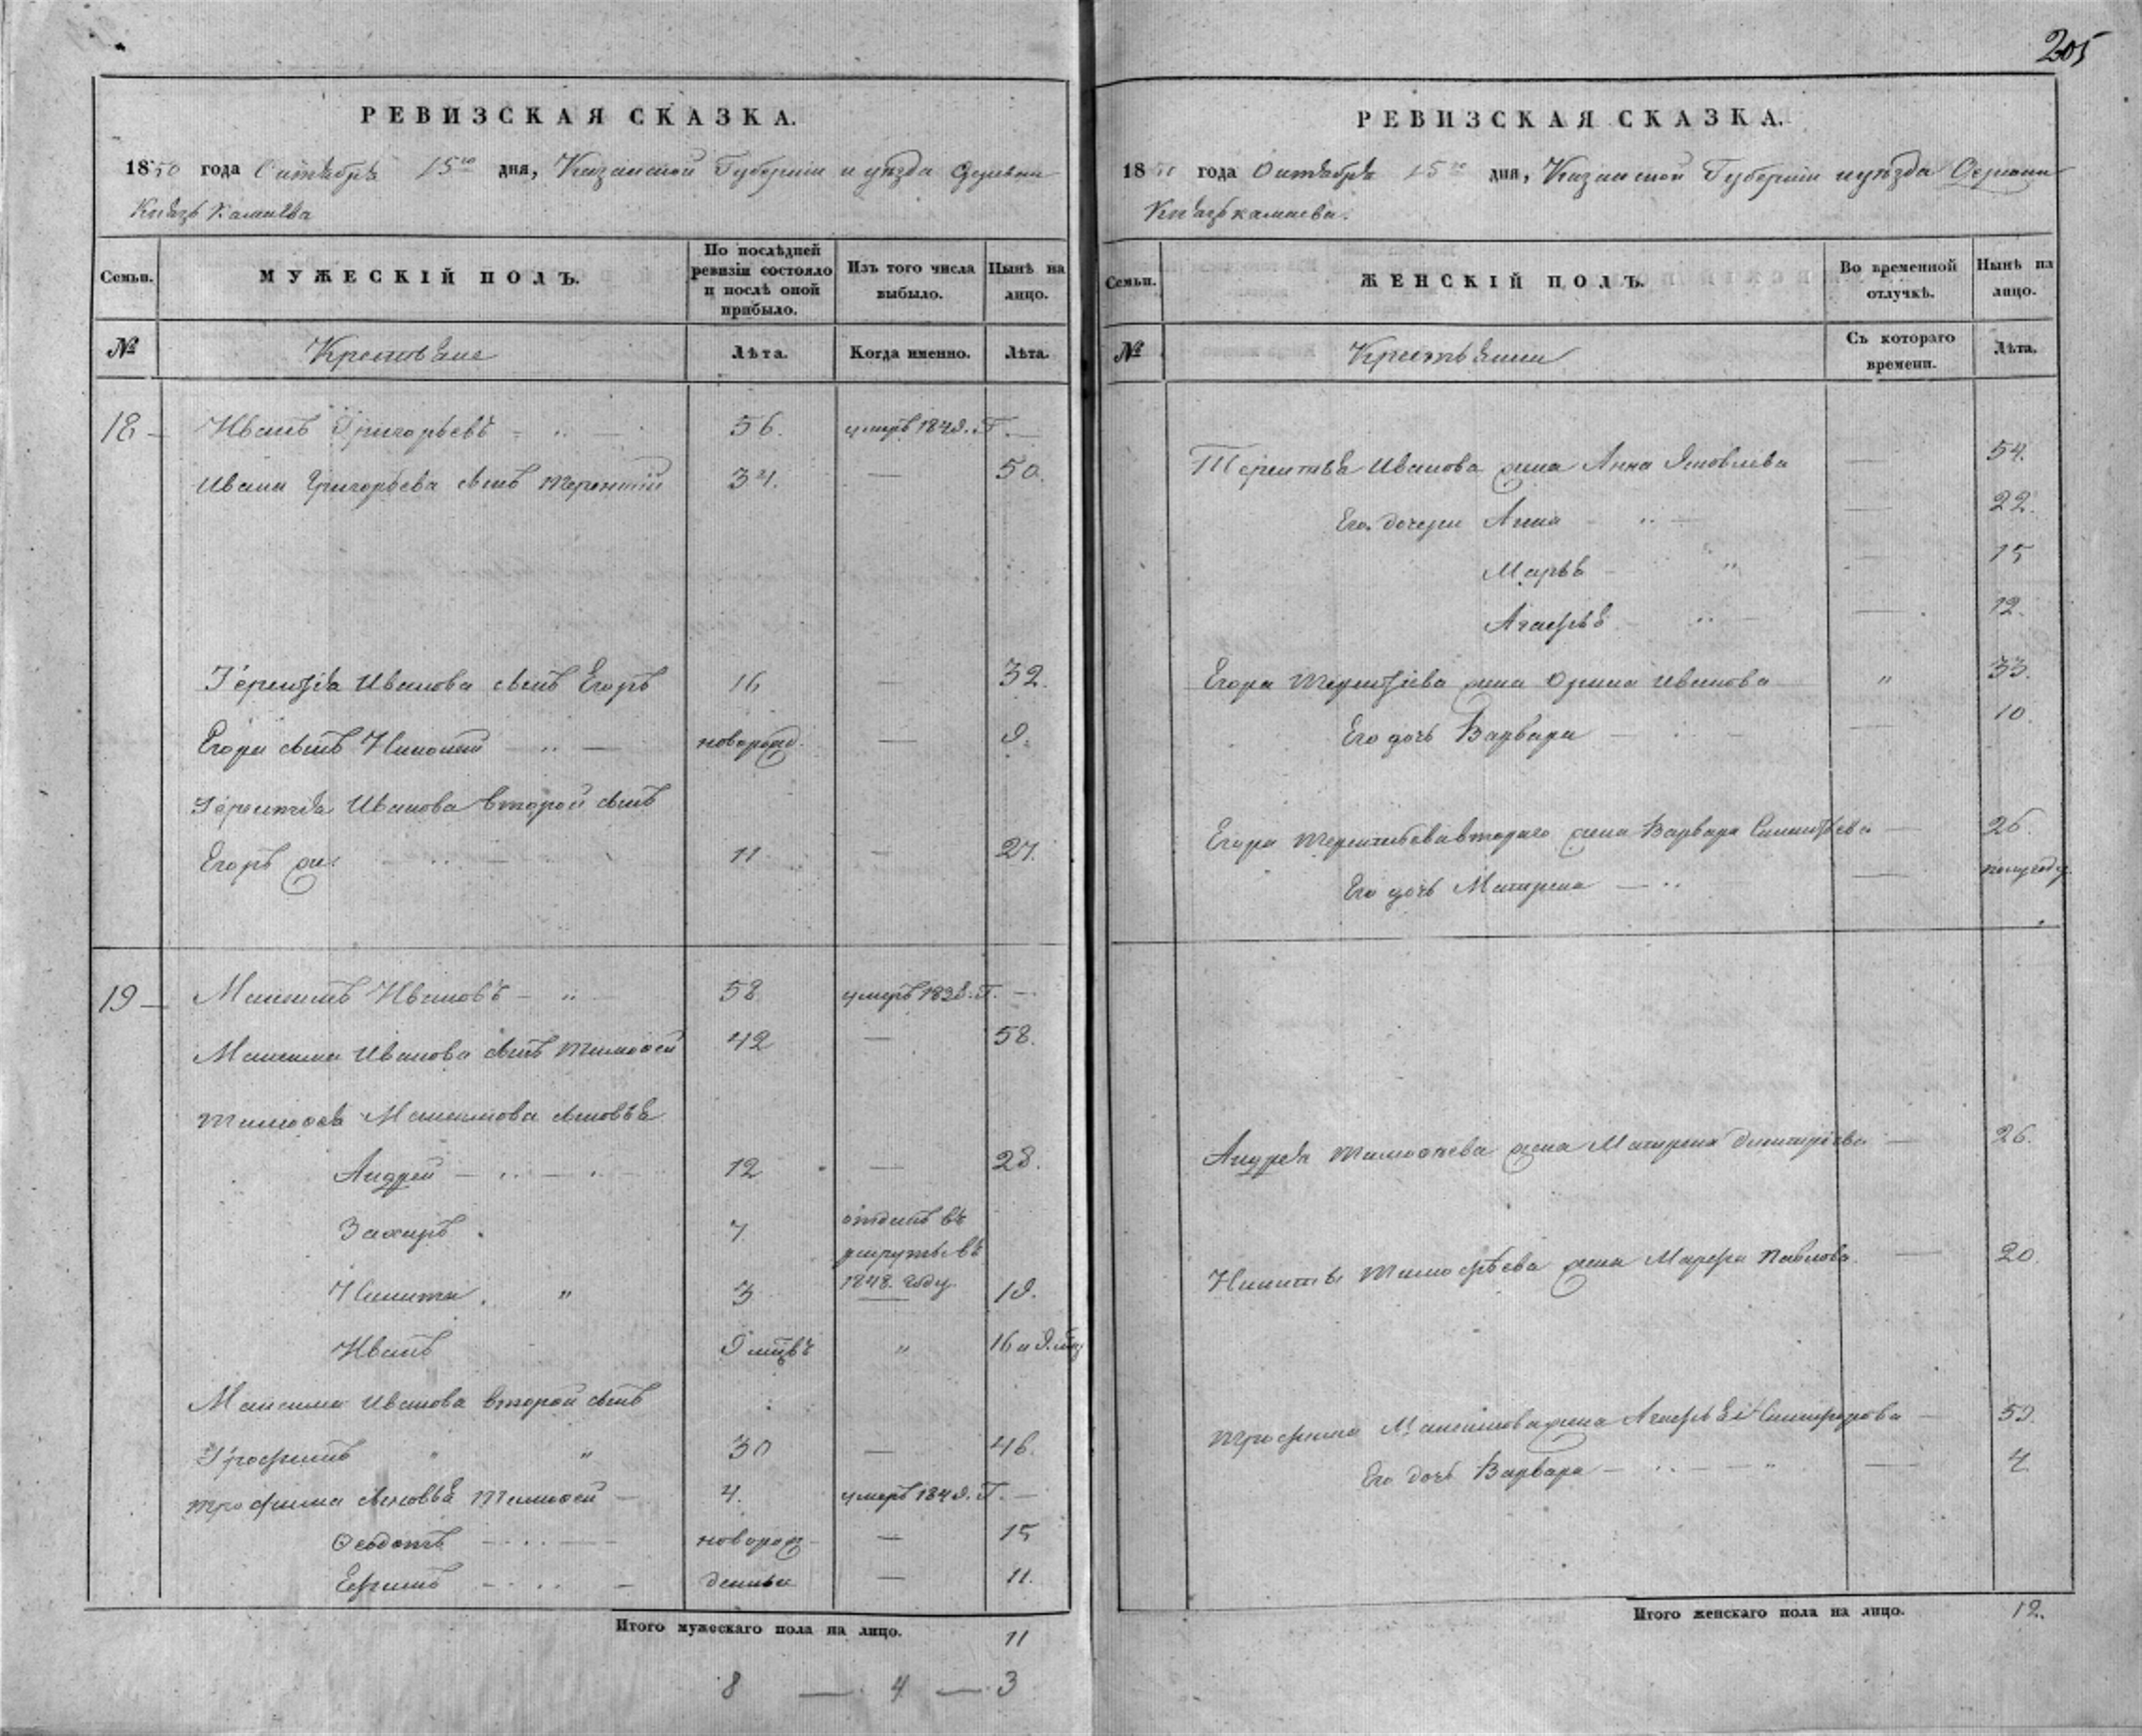 205
РЕВИЗСКАЯ СКАЗКА.
1850 года Октября 15го дня, Казанской Губерніи и уѣзда Деревни
Князь Камаева
Семьи.
МУЖЕСКІЙ ПОЛЪ.
По послѣдней ревизіи состояло и послѣ оной прибыло.
Изъ того числа выбыло.
Нынѣ на лицо.
№
Крестьяне
Лѣта.
Когда именно.
Лѣта.
18 — Иванъ Григорьевъ 56. умеръ 1849. Г. —
Ивана Григорьева сынъ Терентій 34. — 50.
Терентія Иванова сынъ Егоръ 16 — 32.
Егора сынъ Николай новорожд. — 9.
Терентія Иванова второй сынъ
Егоръ же 11 — 27.
19 — Максимъ Ивановъ 58 умеръ 1838. Г. —
Максима Иванова сынъ Тимоѳей 42 — 58.
Тимоѳея Максимова сыновья
Андрей 12 — 28.
Захаръ 7 отданъ въ
рекруты въ
1848. году
Никита 3 — 19.
Иванъ 9 мцвъ " 16 и 9. мц
Максима Иванова второй сынъ
Трофимъ " " 30 — 46.
Трофима сыновья Тимоѳей 4. умеръ 1849. Г. —
Ѳеодотъ новорож — 15
Ефимъ денныя — 11.
Итого мужескаго пола на лицо. 11
8 — 4 — 3
РЕВИЗСКАЯ СКАЗКА.
1850 года Октября 15го дня, Казанской Губерніи и уѣзда Деревни
Князь камаева.
Семьи.
ЖЕНСКІЙ ПОЛЪ.
Во временной отлучкѣ.
Нынѣ на лицо.
№
Крестьянки
Съ котораго времени.
Лѣта.
Терентья Иванова жена Анна Яковлева — 54.
Его дочери Анна — 22.
Марья — " — 15
Агафья — 12.
Егора Терентіева жена Орина Иванова " 33.
Его дочь Варвара — 10.
Егора Терентьева втораго жена Варвара — 26.
Его дочь Матрена — полугоду.
Андрея Тимоѳеева жена Матрена Дмитріева — 26.
Никиты Тимофѣева жена Марфа Павлова — 20.
Трофима Максимова жена Агафья Никифорова — 59.
Его дочь Варвара — " — 4
Итого женскаго пола на лицо. 12.